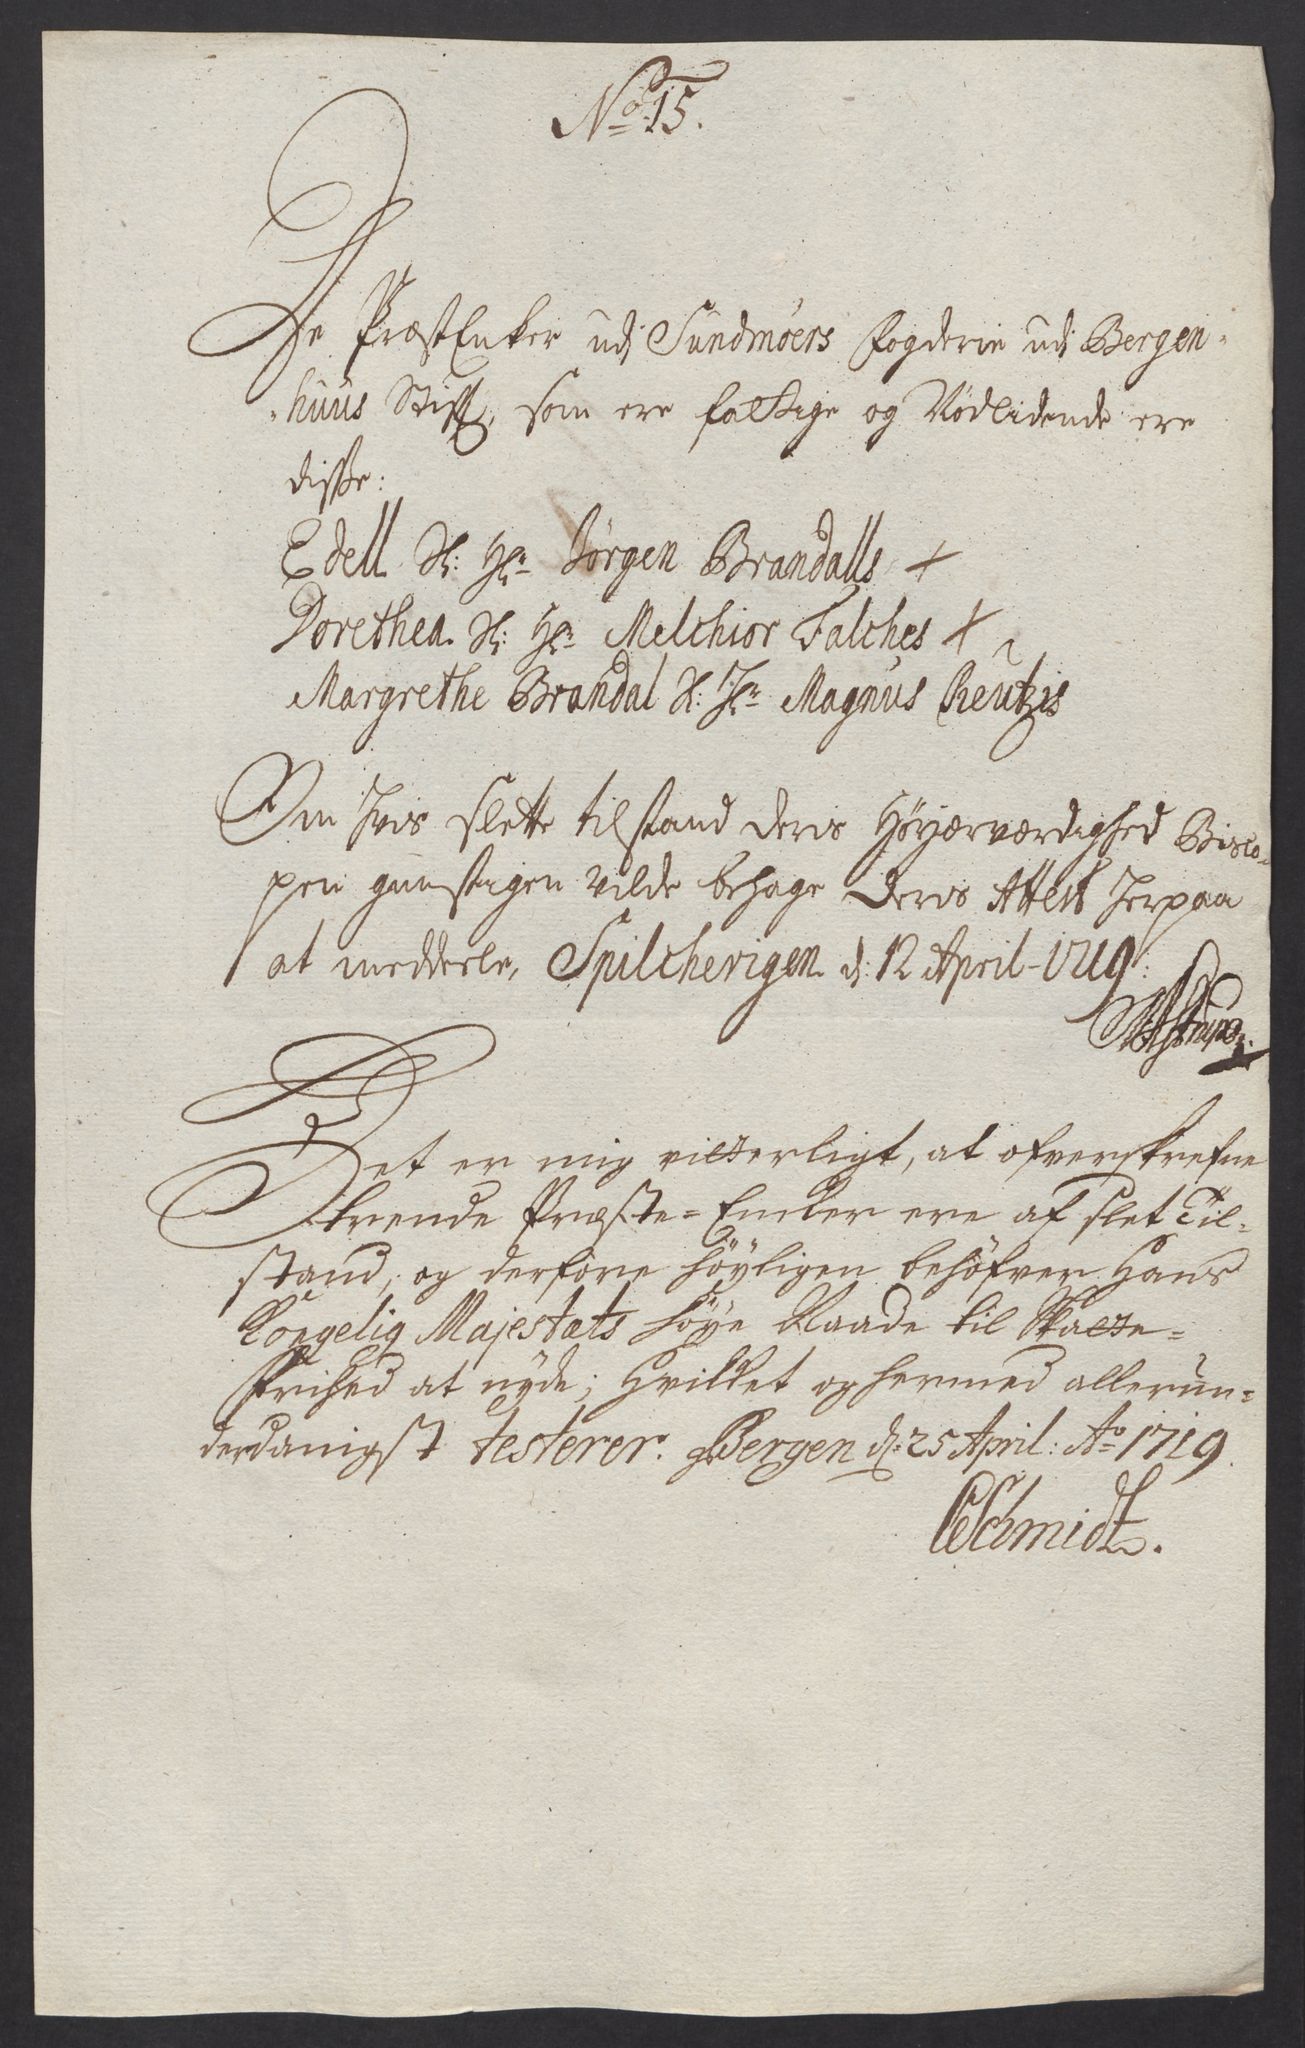 No 15.
De PræstEnker udj Sundmöers fogderie udj Bergen-
-huus Stift, som ere fattige og Nödlidende ere
disse:
Edell Sl: Hr: Jørgen Brandalls +
Dorethea Sl: Hr: Melchior Falches +
Margrethe Brandal Sl: Hr: Magnus Reutzis
Om hvis slette tilstand deris Höyærværdighed Bisco-
pen gunstigen vilde behage deris Attest herpaa
at meddeele, Spilchevigen d: 12 April 1719:
Det er mig vitterligt, at ofverskrefne
trende Præste-Encker ere af slet Til-
stand, og derfore höyligen behöfver Hans
Kongelig Majestæts höye Naade til Skatte-
Frihed at nyde; Hvilket og hermed allerun-
derdanigst testerer. Bergen d: 25 April: Ao 1719.
Schmidt.